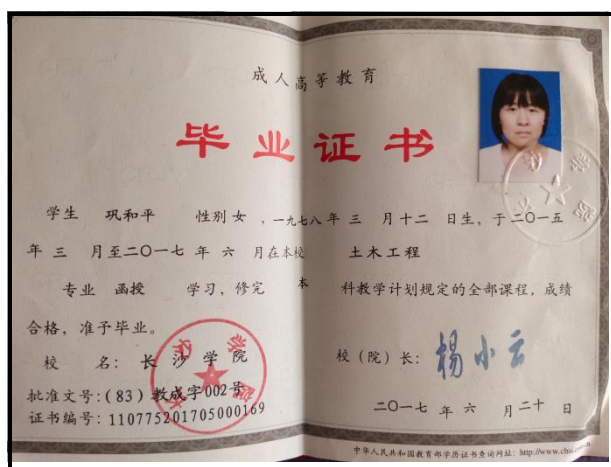 成人高等教育
毕业证书
学生 巩和平 性别 女 ，一九七八年 三 月十二 日生，于二〇一五
年 三 月至二〇一七 年 六 月在本校 土木工程
专业 函授 学习，修完 本 科教学计划规定的全部课程，成绩
合格，准予毕业。
校 名：长沙学院
校（院）长：杨小云
批准文号：(83) 教成字002号
证书编号：110775201705000169
二〇一七 年 六 月二十 日
中华人民共和国教育部学历证书查询网址：http://www.chsi.com.cn